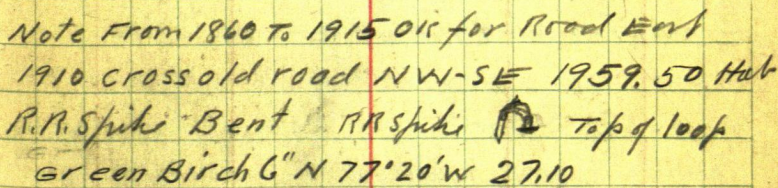 Note From 1860 To 1915 OK for Road East
1910 cross old road NW-SE 1959.50 Hub
R.R. Spike Bent RR Spike Top of loop
Green Birch 6" N 77°20'W 27.10